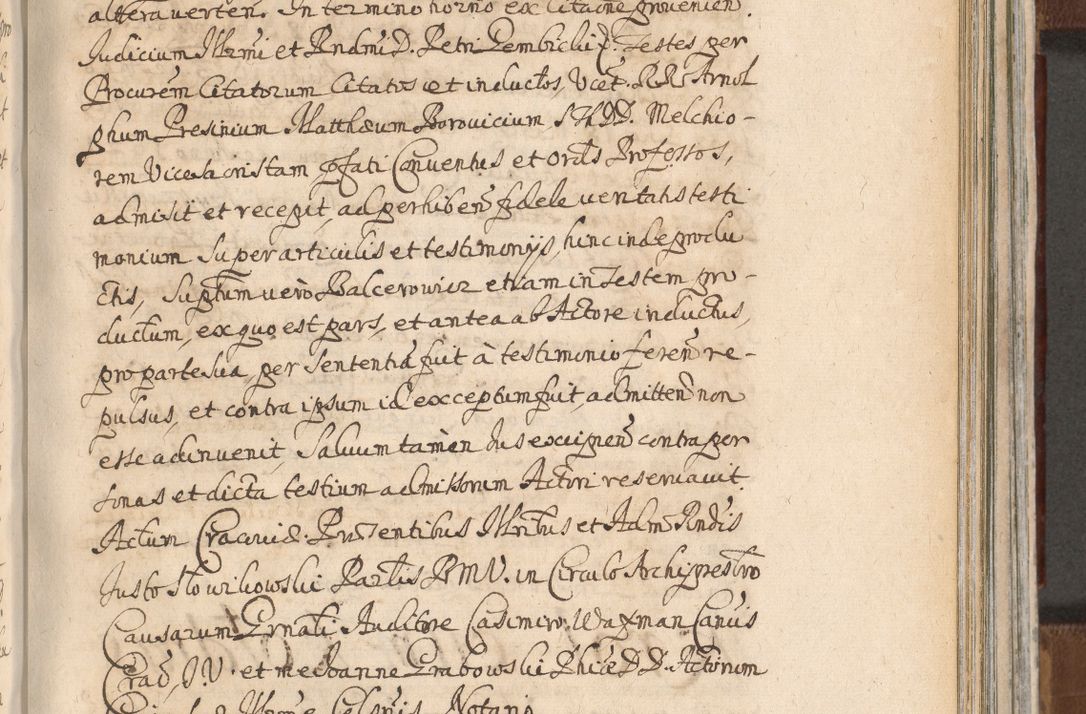 altera verteñ. In termino horno ex Citaone provenien.
Judicium Illrmi et Rndmi D. Petri Gembicki P. Testes per
Procurem Citatorum Citatos et inductos, Vcet. RR. Arnol
phum Presinium Matthæum Borovicium S Th DD. Melchio -
rem Vicesacristam pfati Conventus et Ordis Professos,
admisit et recepit, ad perhibeñ fidele veritatis testi
monium super articulis et testimonijs, hinc inde produ
ctis, Suptum vero Balcerowicz etiam in Testem pro -
ductum, ex quo est pars, et antea ab Actore inductus,
pro parte sua, per Sententia fuit à testimonio fereñ re -
pulsus, et contra ipsum id exceptum fuit, admitteñ non
esse adinvenit, Salvum tamen Jus excipieñ contra per
sonas et dicta testium admissorum Actori reservavit.
Actum Cracoviæ. Præsentibus Illribus et Adm Rndis
Justo Słowikowski Partis BMV. in Circulo Archipresbro
Causarum Grnali Auditore Casimiro Waxman Canis
Crac, J.V. et me Joanne Grabowski Phiæ DD. Actorum
Notario